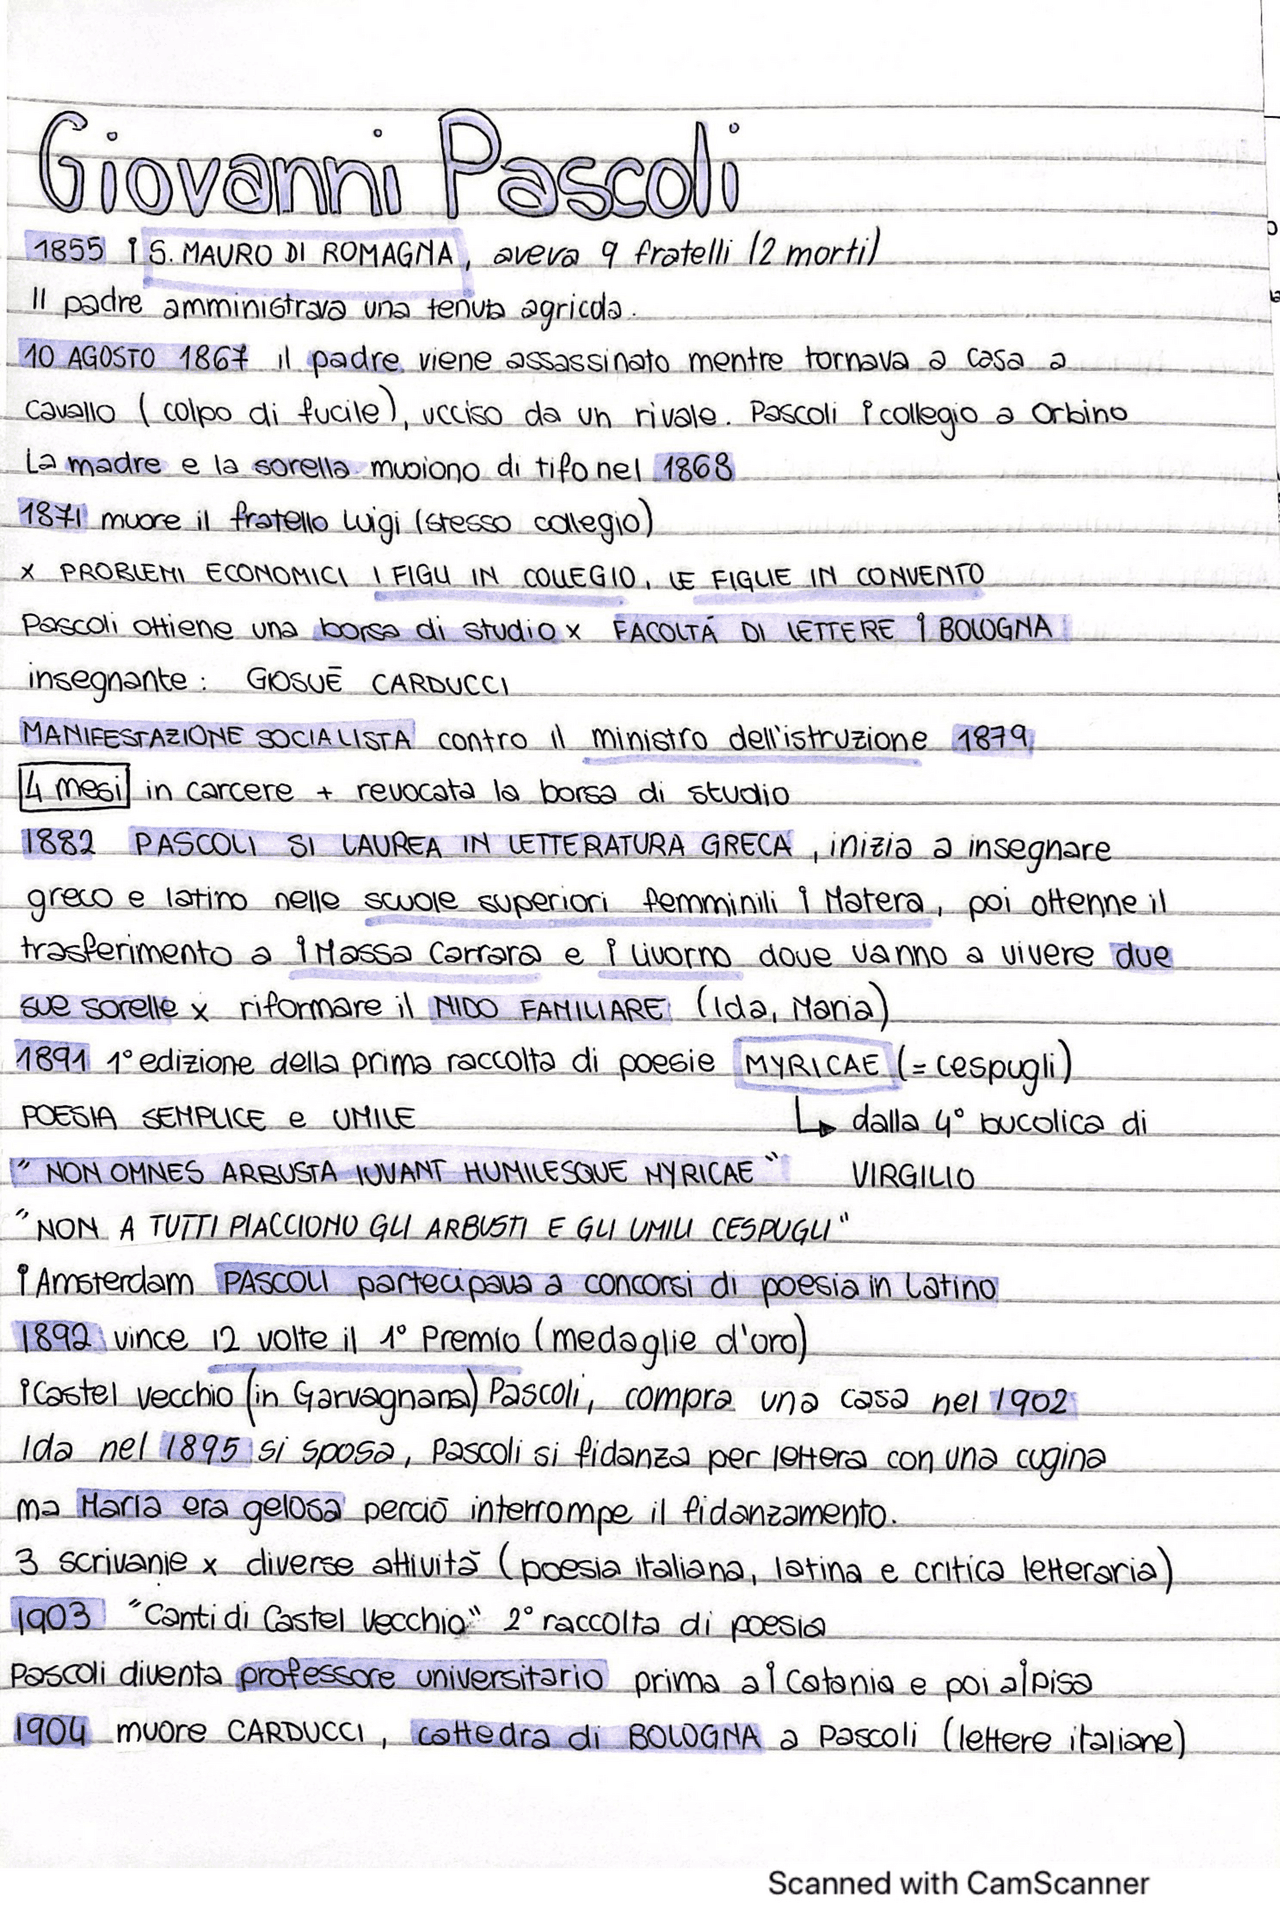 Giovanni Pascoli
1855 S. MAURO DI ROMAGNA, aveva 9 fratelli (2 morti)
Il padre amministrava una tenuta agricola.
10 AGOSTO 1867 il padre viene assassinato mentre tornava a casa a
cavallo (colpo di fucile), ucciso da un rivale. Pascoli collegio a Orbino
La madre e la sorella muoiono di tifo nel 1868
1871 muore il fratello Luigi (stesso collegio)
x PROBLEMI ECONOMICI I FIGLI IN COLLEGIO, LE FIGLIE IN CONVENTO
Pascoli ottiene una borsa di studio x FACOLTÀ DI LETTERE BOLOGNA
insegnante: GIOSUÈ CARDUCCI
MANIFESTAZIONE SOCIALISTA contro il ministro dell'istruzione 1879
4 mesi in carcere + revocata la borsa di studio
1882 PASCOLI SI LAUREA IN LETTERATURA GRECA, inizia a insegnare
greco e latino nelle scuole superiori femminili Matera, poi ottenne il
trasferimento a Massa Carrara e Livorno dove vanno a vivere due
sue sorelle x riformare il NIDO FAMILIARE (Ida, Maria)
1891 1° edizione della prima raccolta di poesie MYRICAE (= cespugli)
POESIA SEMPLICE e UMILE ↳ dalla 4° bucolica di
"NON OMNES ARBUSTA IUVANT HUMILESQUE MYRICAE" VIRGILIO
"NON A TUTTI PIACCIONO GLI ARBUSTI E GLI UMILI CESPUGLI"
Amsterdam PASCOLI partecipava a concorsi di poesia in Latino
1892 vince 12 volte il 1° Premio (medaglie d'oro)
Castel vecchio (in Garvagnana) Pascoli, compra una casa nel 1902
Ida nel 1895 si sposa, Pascoli si fidanza per lettera con una cugina
ma Maria era gelosa perciò interrompe il fidanzamento.
3 scrivanie x diverse attività (poesia italiana, latina e critica letteraria)
1903 "Canti di Castel Vecchio" 2° raccolta di poesia
Pascoli diventa professore universitario prima a Catania e poi a Pisa
1904 muore CARDUCCI, cattedra di BOLOGNA a Pascoli (lettere italiane)
Scanned with CamScanner